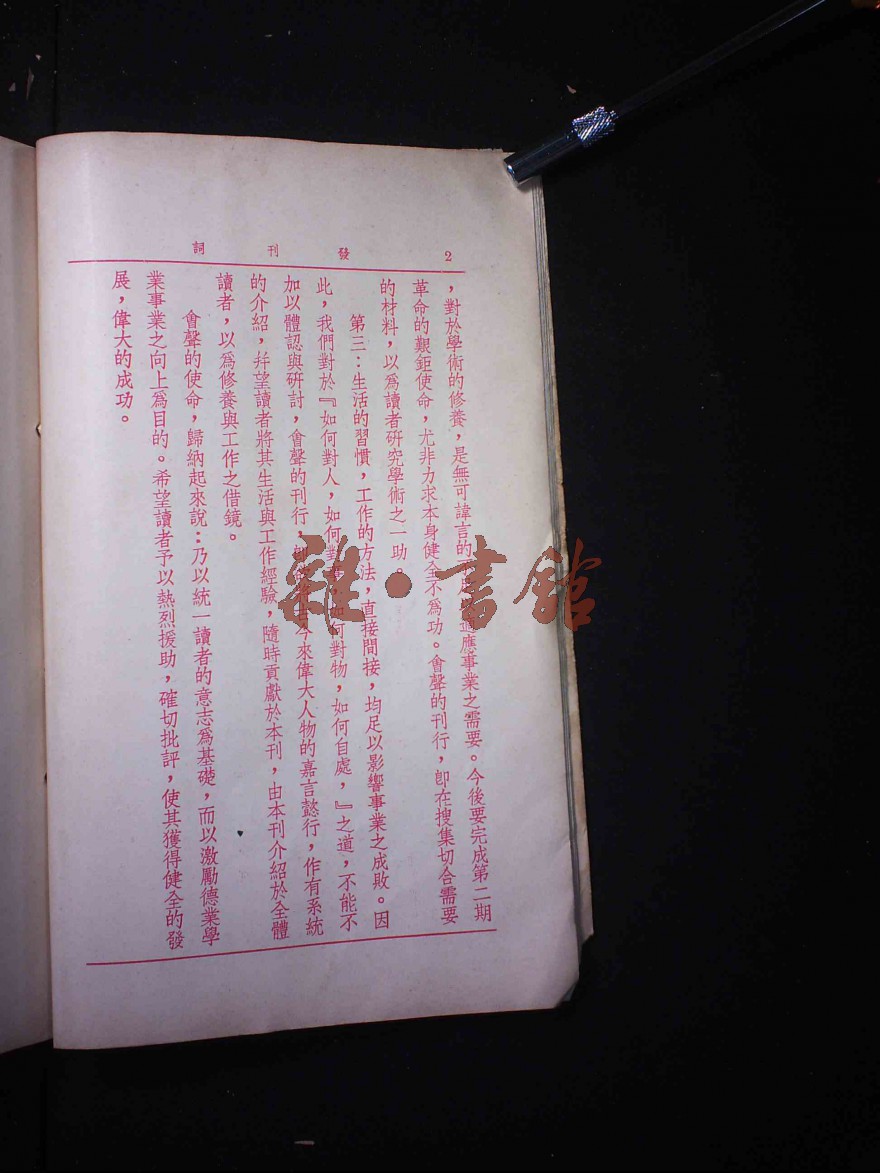 發刊詞 2
，對於學術的修養，是無可諱言的 應事業之需要。今後要完成第二期
革命的艱鉅使命，尤非力求本身健全不爲功。會聲的刊行，卽在搜集切合需要
的材料，以爲讀者研究學術之一助。
第三：生活的習慣，工作的方法，直接間接，均足以影響事業之成敗。因
此，我們對於『如何對人，如何對 如何對物，如何自處，』之道，不能不
加以體認與研討，會聲的刊行， 今來偉大人物的嘉言懿行，作有系統
的介紹，幷望讀者將其生活與工作經驗，隨時貢獻於本刊，由本刊介紹於全體
讀者，以爲修養與工作之借鏡。
會聲的使命，歸納起來說：乃以統一讀者的意志爲基礎，而以激勵德業學
業事業之向上爲目的。希望讀者予以熱烈援助，確切批評，使其獲得健全的發
展，偉大的成功。
雜·書館